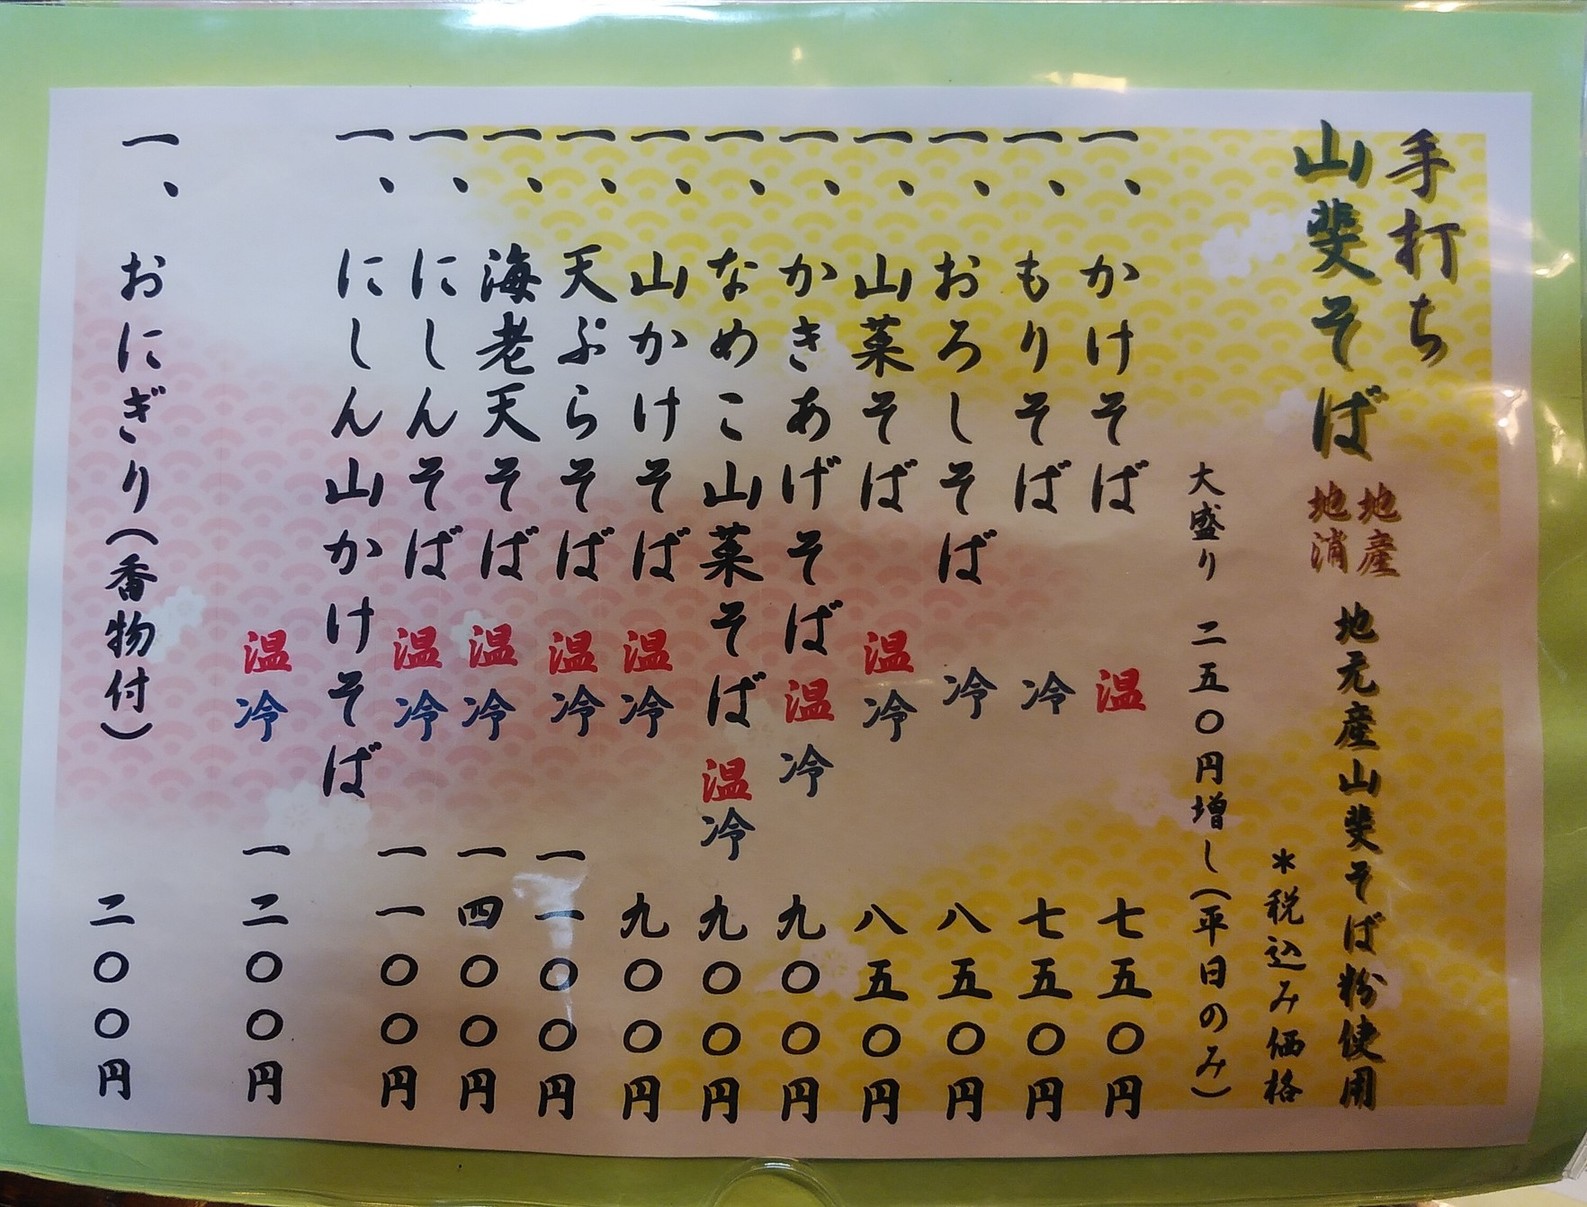 手打ち
山斐そば
地産
地消
地元産山斐そば粉使用
＊税込み価格
大盛り 二五〇円増し(平日のみ)
一、かけそば 温 七五〇円
一、もりそば 冷 七五〇円
一、おろしそば 冷 八五〇円
一、山菜そば 温冷 八五〇円
一、かきあげそば 温冷 九〇〇円
一、なめこ山菜そば 温冷 九〇〇円
一、山かけそば 温冷 九〇〇円
一、天ぷらそば 温冷 一一〇〇円
一、海老天そば 温冷 一四〇〇円
一、にしんそば 温冷 一一〇〇円
一、にしん山かけそば
温冷 一二〇〇円
一、おにぎり(香物付) 二〇〇円